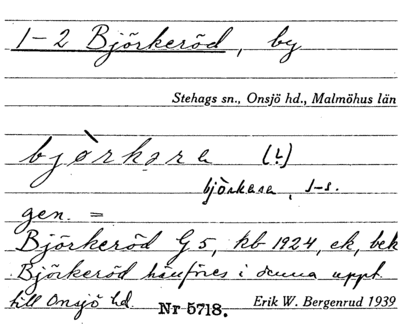 1-2 Björkeröd, by
Stehags sn., Onsjö hd., Malmöhus län
bjò̀rkəra (!)
björkara, 1-s.
gen. =
Björkeröd G5, kb 1924, ek, bek
Björkeröd hänföres i denna uppt.
till Onsjö hd.
Nr 5718. Erik W. Bergenrud 1939